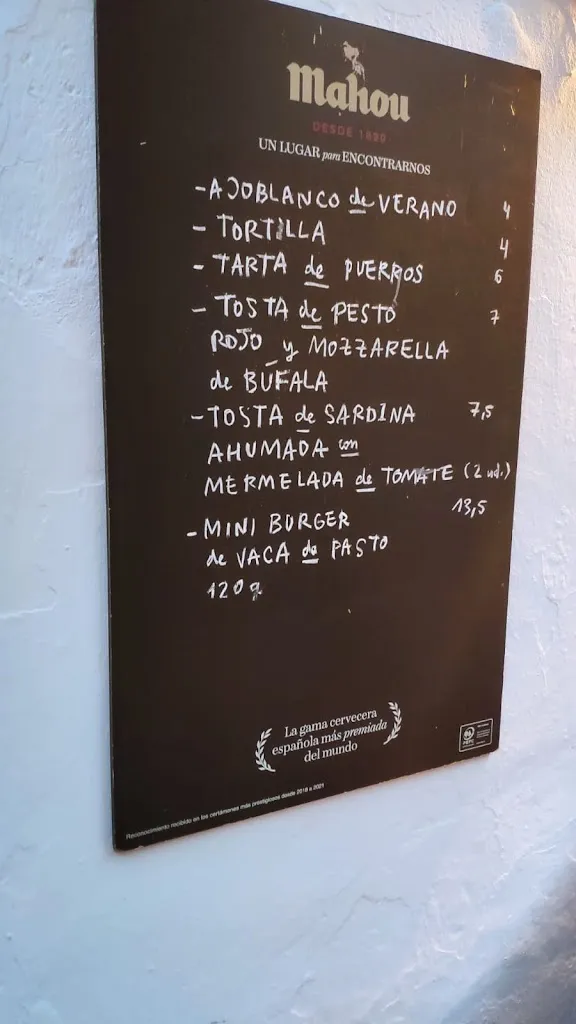 Mahou
DESDE 1890
UN LUGAR para ENCONTRARNOS
- AJOBLANCO de VERANO 4
- TORTILLA 4
- TARTA de PUERROS 6
- TOSTA de PESTO 7
ROJO y MOZZARELLA
de BÚFALA
- TOSTA de SARDINA 7,5
AHUMADA con
MERMELADA de TOMATE (2 ud.)
- MINI BURGER 13,5
de VACA de PASTO
120g
La gama cervecera
española más premiada
del mundo
PEFC
Reconocimiento recibido en los certámenes más prestigiosos desde 2018 a 2021